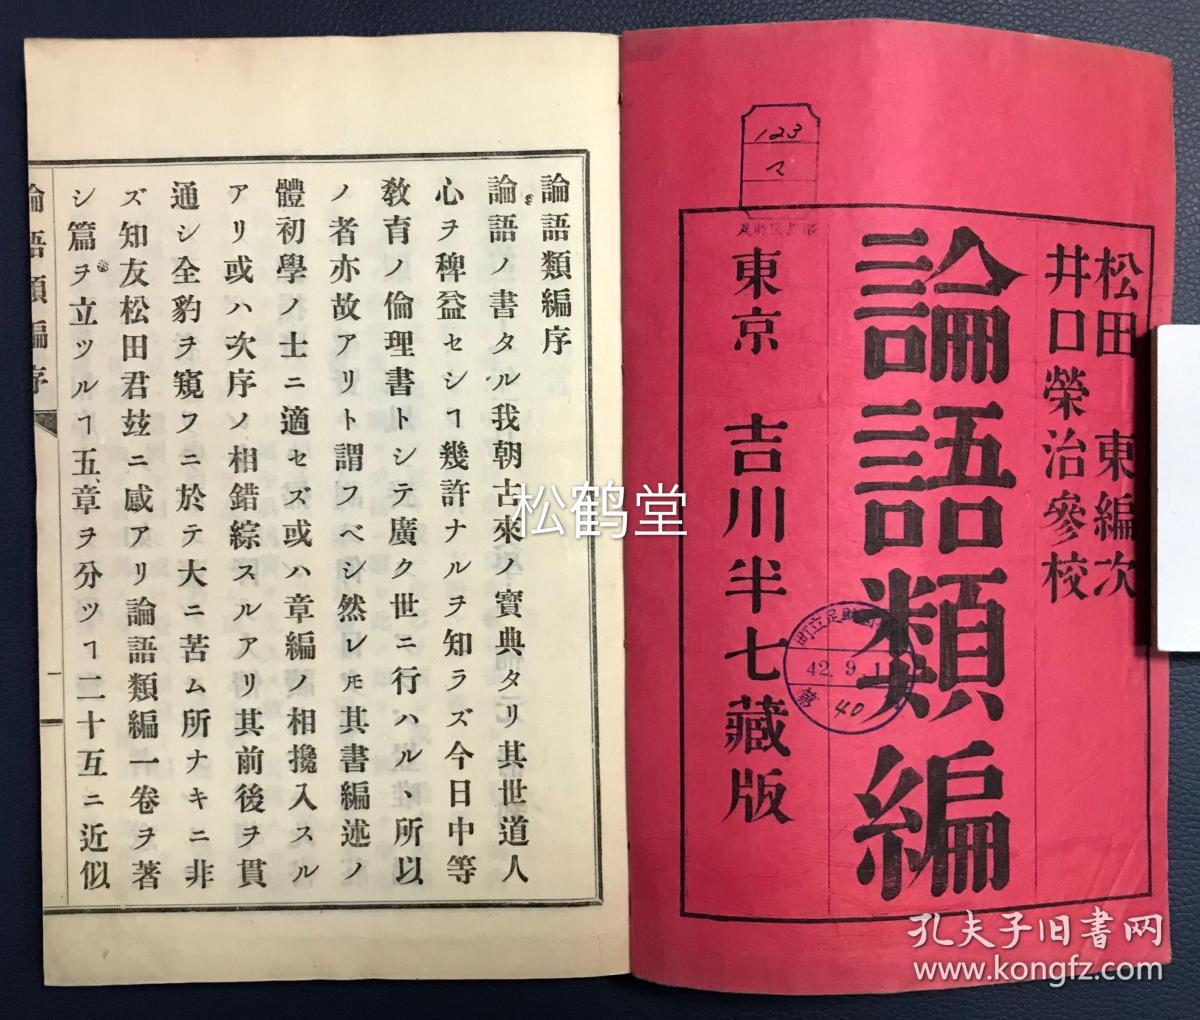 松田東編次
井口榮治參校
論語類編
東京 吉川半七藏版
123
マ
町立足助
42.9.1
40
論語類編序
論語ノ書タル我朝古來ノ寶典タリ其世道人
心ヲ稗益セシヿ幾許ナルヲ知ラズ今日中等
敎育ノ倫理書トシテ廣ク世ニ行ハルヽ所以
ノ者亦故アリト謂フベシ然レ𪜈其書編述ノ
體初學ノ士ニ適セズ或ハ章編ノ相攙入スル
アリ或ハ次序ノ相錯綜スルアリ其前後ヲ貫
通シ全豹ヲ窺フニ於テ大ニ苦ム所ナキニ非
ズ知友松田君玆ニ感アリ論語類編一卷ヲ著
シ篇ヲ立ツルヿ五、章ヲ分ツヿ二十互ニ近似
論語類編序
一
松鹤堂
孔夫子旧书网
www.kongfz.com